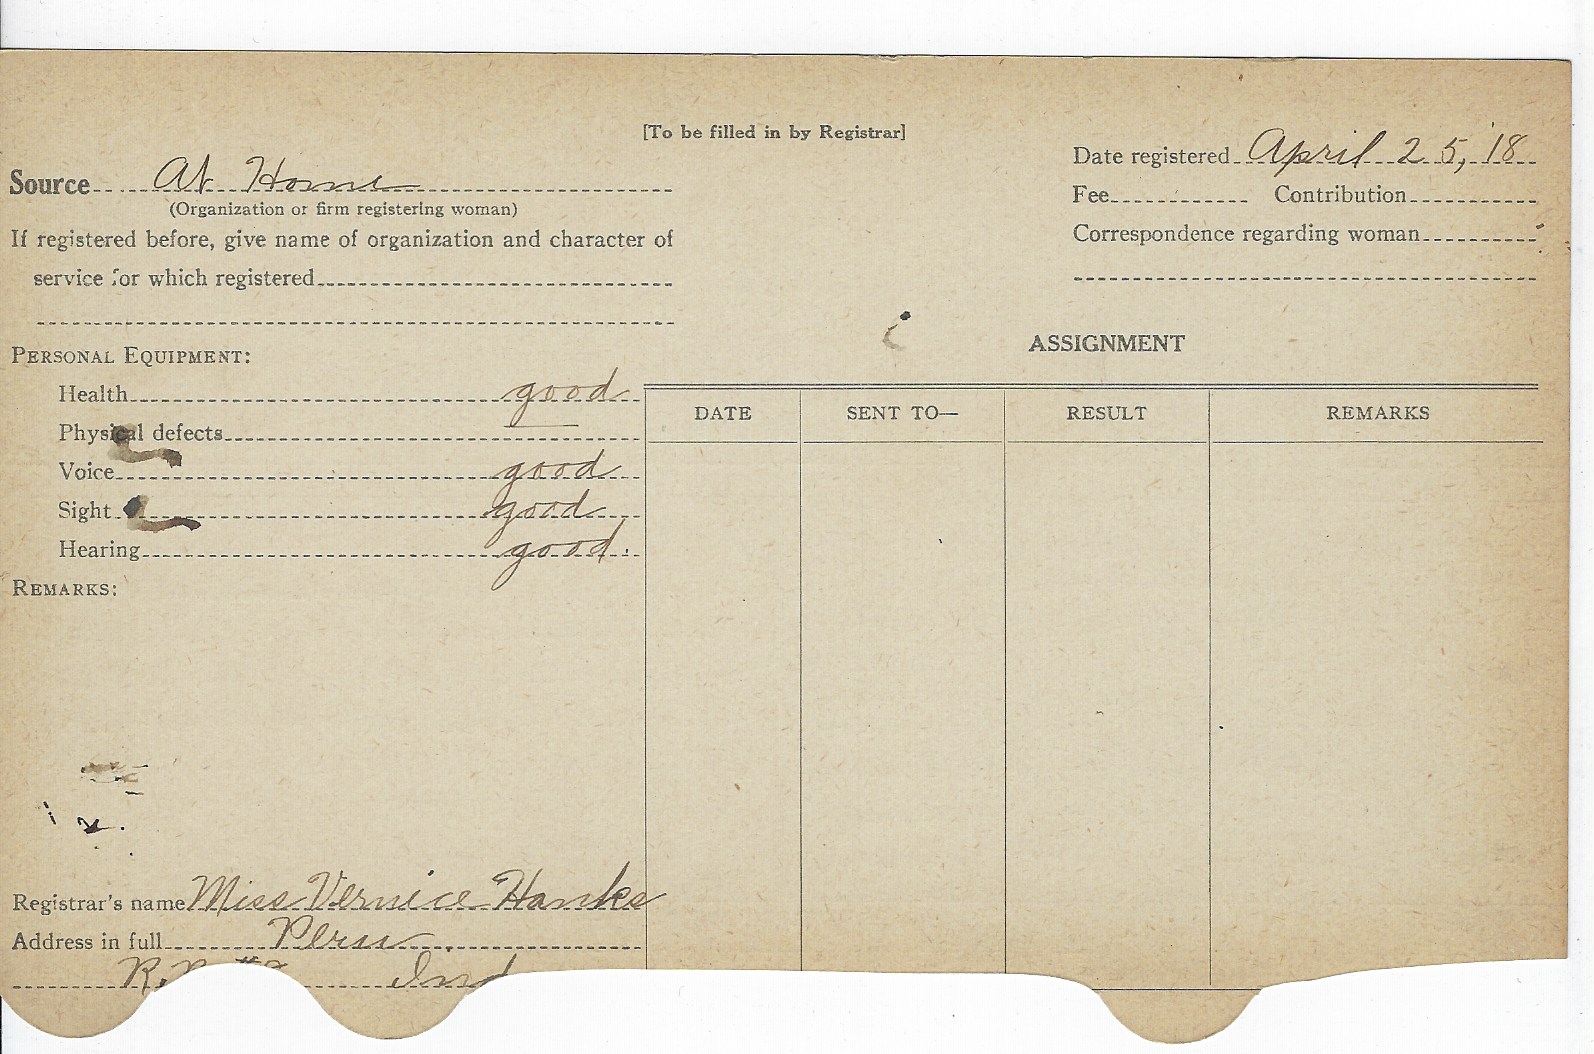 [To be filled in by Registrar]
Source At Home
(Organization or firm registering woman)
If registered before, give name of organization and character of
service for which registered
Date registered April 25, '18
Fee Contribution
Correspondence regarding woman
PERSONAL EQUIPMENT:
Health good
Physical defects —
Voice good
Sight good
Hearing good.
REMARKS:
ASSIGNMENT
DATE SENT TO— RESULT REMARKS
Registrar's name Miss Vernice Hanks
Address in full Peru
R. Ind